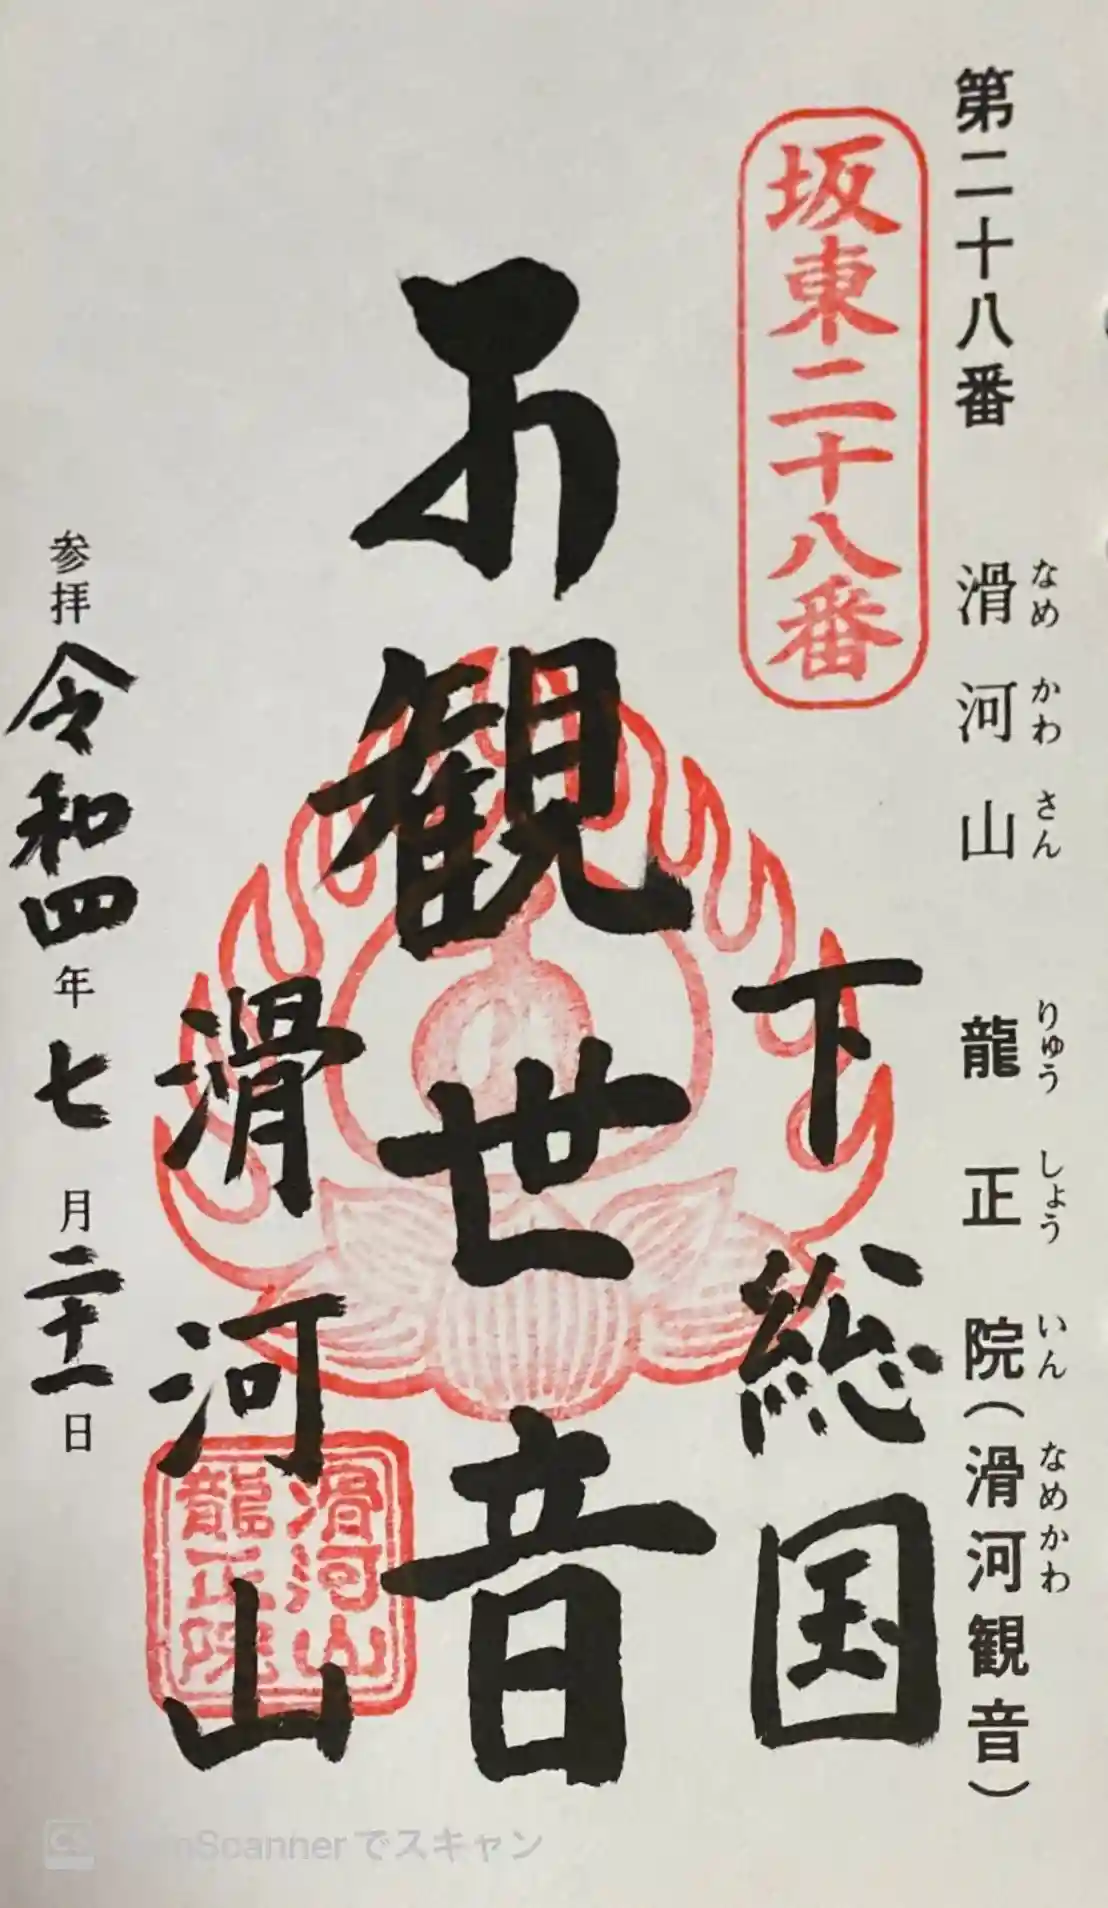 第二十八番 滑河山 龍正院(滑河観音)
なめ かわ さん りゅう しょう いん なめかわ
坂東二十八番
下総国
観世音
滑河山
滑河山
龍正院
参拝 令和四年 七月二十一日
Scanner でスキャン